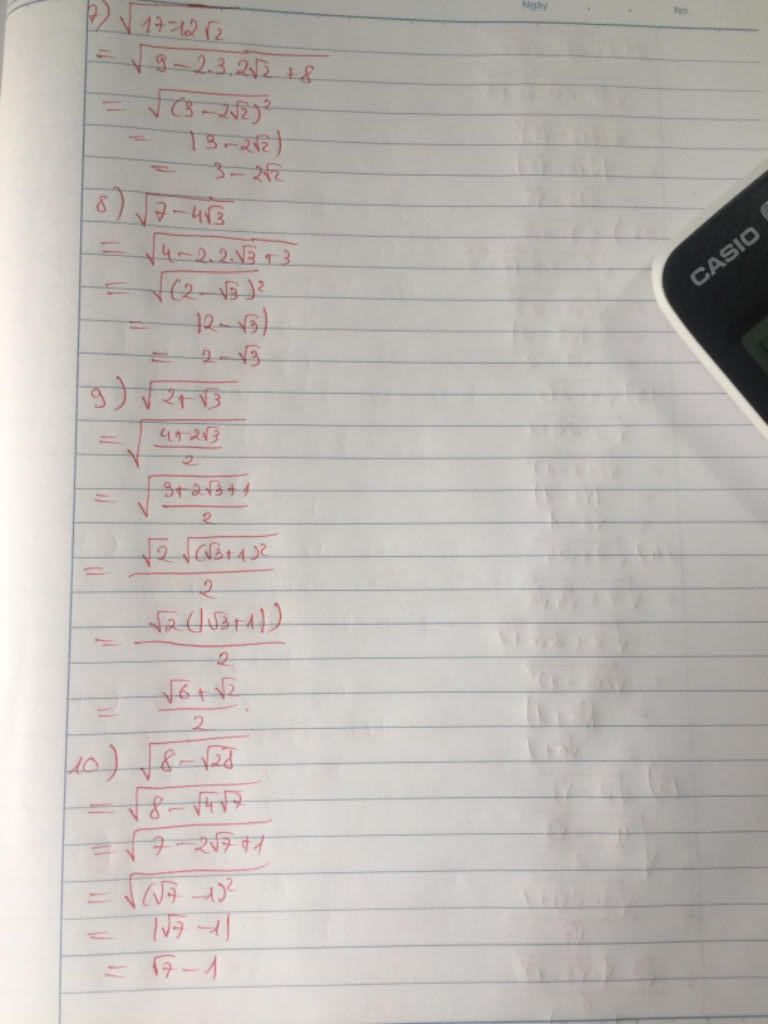 Ngày No.
7) √(17-12√2)
= √(9-2.3.2√2+8)
= √((3-2√2)²)
= |3-2√2|
= 3-2√2
8) √(7-4√3)
= √(4-2.2.√3+3)
= √((2-√3)²)
= |2-√3|
= 2-√3
9) √(2+√3)
= √((4+2√3)/2)
= √((3+2√3+1)/2)
= (√2 √((√3+1)²))/2
= (√2(|√3+1|))/2
= (√6+√2)/2.
10) √(8-√28)
= √(8-√4√7)
= √(7-2√7+1)
= √((√7-1)²)
= |√7-1|
= √7-1
CASIO